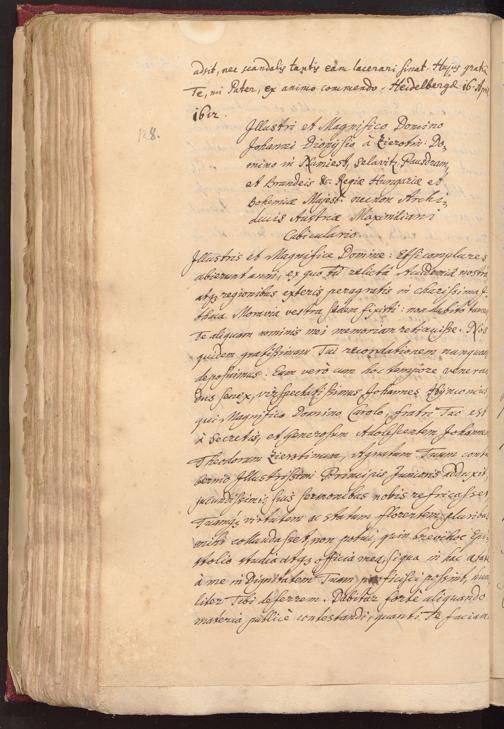 adsit, nec scandalis tantis eam lacerari sinat. Hujus gratia
Te, mi Pater, ex animo commendo, Heidelbergæ 16. Apri
1612.
128.
Illustri et Magnifico Domino
Johanni Dionysio à Zierotin: Do-
mino in Namiest,
et Brandeis &c. Regiæ Hungariæ et
Bohemiæ Majest. necnon Archi-
ducis Austriæ Maximiliani
Cubiculario.
Illustris et Magnifice Domine: Etsi complures
abierunt anni, ex quo tu relictâ Academiâ nostra
atq3 regionibus exteris peragratis in charissima
Moravia vestra sedem fixisti: non dubito tamen
Te aliquam nominis mei memoriam retinuisse. Nos
quidem gratissimam Tui recordationem nunquam
deposuimus: Eam verò cum hoc tempore veneran
dus senex, vir spectatissimus Johannes
qui Magnifico Domino Carolo, fratri Tuo est
à Secretis, et Generosum Adolescentem Johannem
Theodorum Zierotinum, Agnatum Tuum contu
bernio Illustrissimi Principis Junioris adduxit,
jucundissimis suis sermonibus nobis refricasset,
Tuamq3 virtutem ac statum florentem pluribus
mihi collaudasset, non potui, quin brevibus Epi-
stolio studia atq3 officia mea, siqua in hac ætate
à me in Dignitatem Tuam proficisci possint, hum
liter Tibi deferrem. Dabitur forte aliquando
materia publicè contestandi, quanti Te faciam